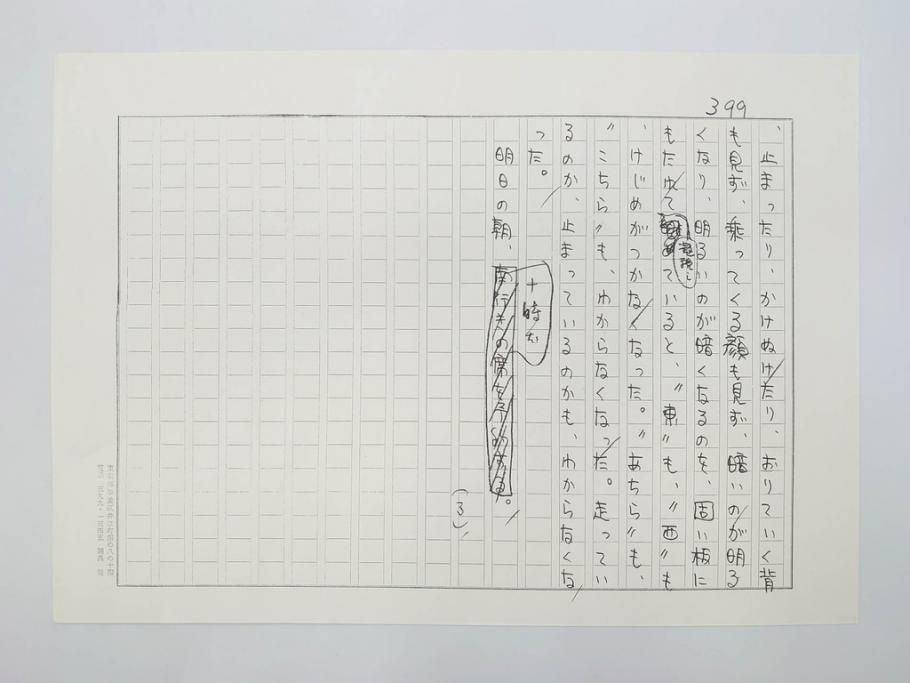 399
、止まったり、かけぬけたり、おりていく背
も見ず、乗ってくる顔も見ず、暗いのが明る
くなり、明るいのが暗くなるのを、固い板に
もたれて凝視していると、〃東〃も、〃西〃も
、けじめがつかなくなった。〃あちら〃も、
〃こちら〃も、わからなくなった。走ってい
るのか、止まっているのかも、わからなくな
った。
明日の朝、十時だ。
(3)